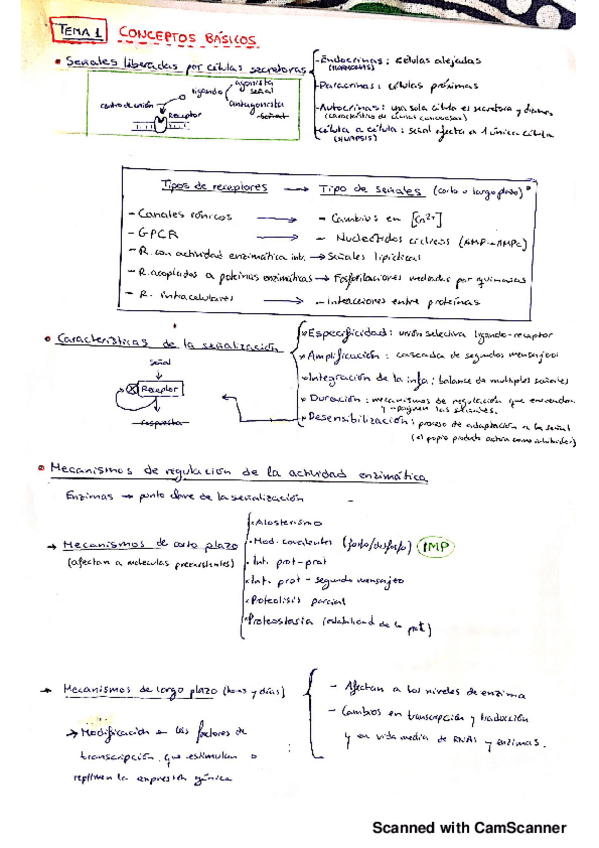 TEMA 1 CONCEPTOS BÁSICOS
• Señales liberadas por células secretoras
- Endocrinas: células alejadas
(HORMONAS)
- Paracrinas: células próximas
- Autocrinas: una sola célula es secretora y diana
(característico de células cancerosas)
- Célula a célula: señal afecta a 1 única célula
(SINAPSIS)
centro de unión
ligando
agonista
señal
antagonista
señal
Receptor
Tipos de receptores → Tipo de señales (corto o largo plazo)*
- Canales iónicos → - Cambios en [Ca2+]
- GPCR → - Nucleótidos cíclicos (AMP→AMPc)
- R. con actividad enzimática int. → Señales lipídicas
- R. acoplados a proteínas enzimáticas → Fosforilaciones mediadas por quinasas
- R. intracelulares → - Interacciones entre proteínas
• Características de la señalización
Especificidad: unión selectiva ligando-receptor
Amplificación: cascada de segundos mensajeros
Integración de la info: balance de múltiples señales
Duración: mecanismos de regulación que enciendan
y apaguen las señales.
Desensibilización: proceso de adaptación a la señal
(el propio producto actúa como inhibidor)
señal
Receptor
respuesta
• Mecanismos de regulación de la actividad enzimática
Enzimas → punto clave de la señalización
→ Mecanismos de corto plazo
(afectan a moléculas preexistentes)
• Alosterismo
• Mod. covalentes (fosfo/desfosfo) IMP
• Int. prot-prot
• Int. prot - segundo mensajero
• Proteolisis parcial
• Proteostasia (estabilidad de la prot)
→ Mecanismos de largo plazo (horas y días)
- Afectan a los niveles de enzima
- Cambios en transcripción y traducción
y en vida media de RNAs y enzimas.
→ Modificación en los factores de
transcripción que estimulan o
reprimen la expresión génica
Scanned with CamScanner